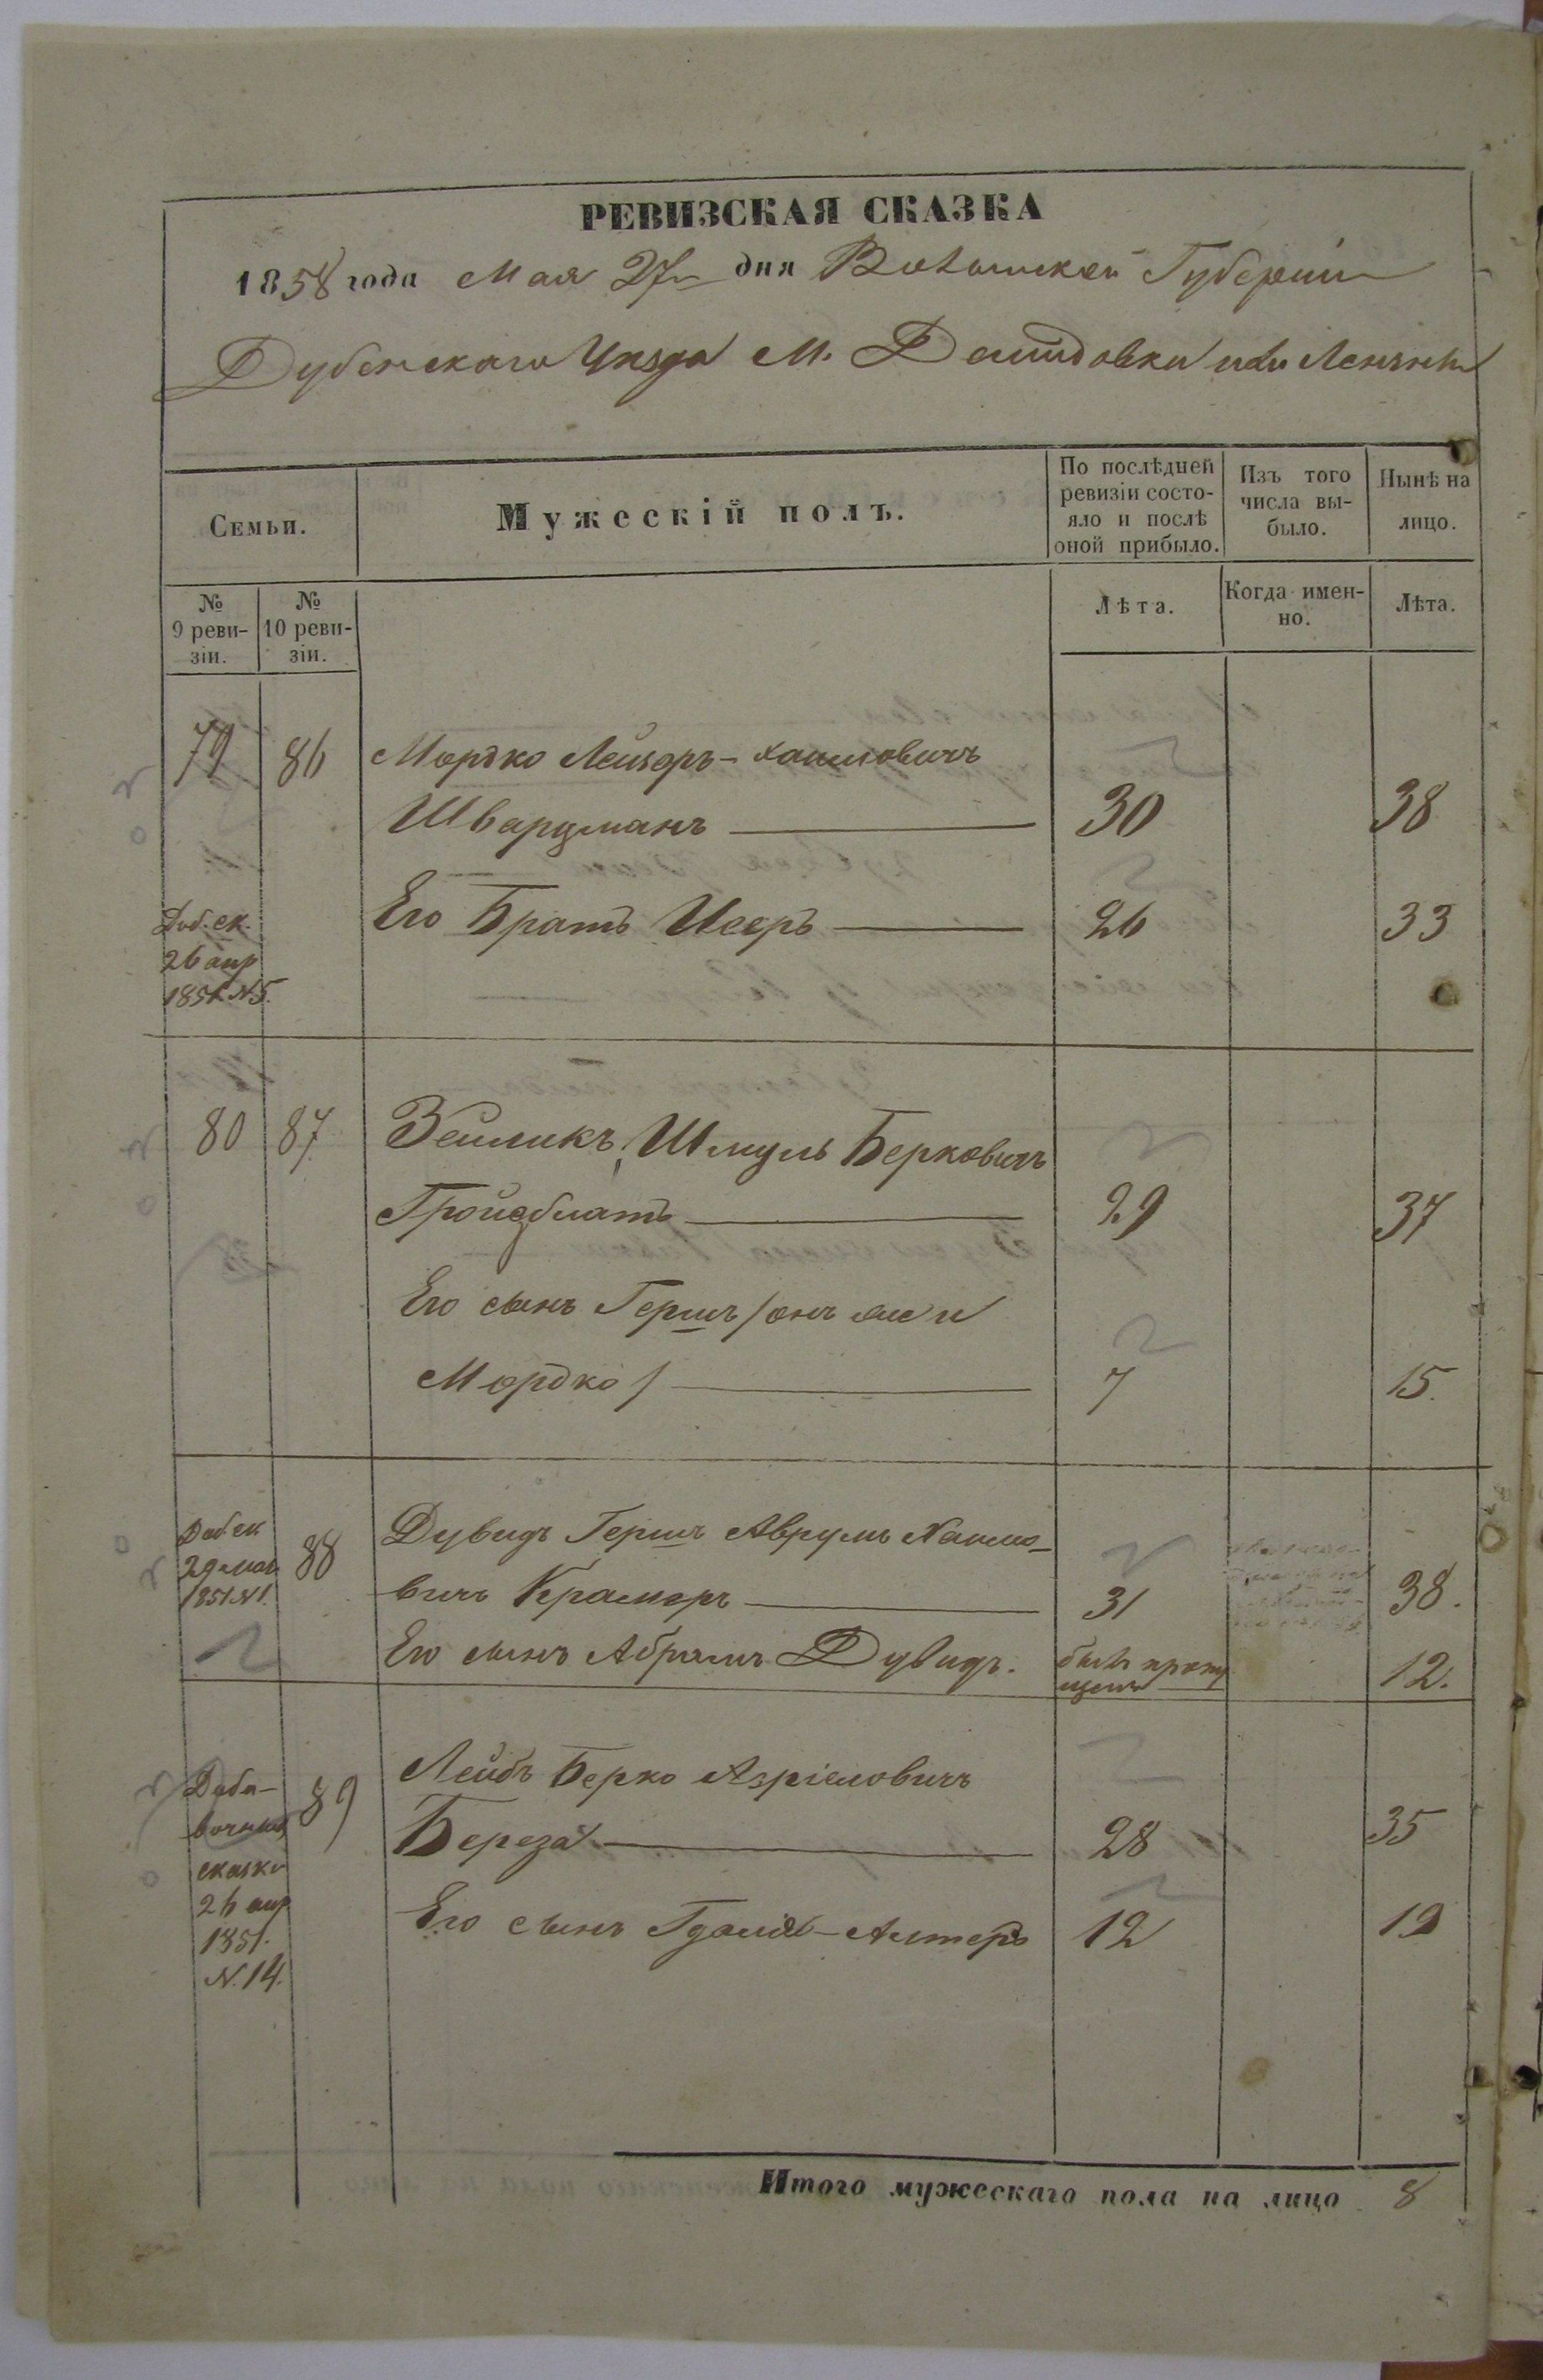 РЕВИЗСКАЯ СКАЗКА
1858 года Мая 27 дня Волынской Губерніи
Дубенскаго Уѣзда М. Демидовки или
Семьи.
Мужескій полъ.
По послѣдней ревизіи состо-
яло и послѣ
оной прибыло.
Изъ того
числа вы-
было.
Нынѣ на
лицо.
№
9 реви-
зіи.
№
10 реви-
зіи.
Лѣта.
Когда имен-
но.
Лѣта.
79 86 Мордко Лейзоръ-Хаимовичъ
Шварцманъ 30 38
Его Братъ Исеръ 26 33
Доб. ск.
26 апр
1851 N5.
80 87 Зейликъ, Шмуль Берковичъ
Гройсблатъ 29 37
Его сынъ Гершъ /онъ же и
Мордко/ 7 15.
Доб ск
29 мая
1851 N1.
88 Дувидъ Гершъ Аврумъ Хаимо-
вичъ Крамеръ 31 38.
Его сынъ Абрамъ Дувидъ. былъ пропу
щенъ 12.
Доба-
вочная
сказка
26 апр
1851.
N.14.
89 Лейбъ Берко Азріеловичъ
Береза 28 35
Его сынъ Гдалія-Алтеръ 12 19
Итого мужескаго пола на лицо 8